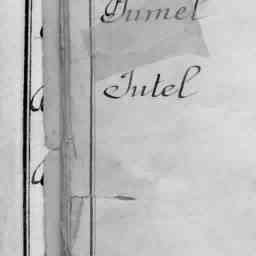 Jumel
Jutel